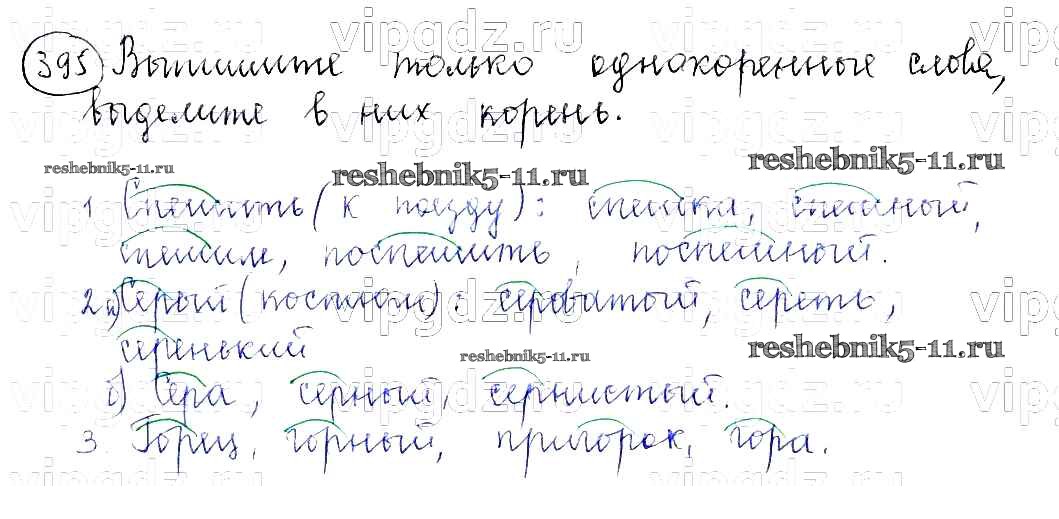 395 Выпишите только однокоренные слова,
выделите в них корень.
reshebnik5-11.ru reshebnik5-11.ru reshebnik5-11.ru
1 Спешить (к поезду): спешка, спешный,
спешим, поспешить, поспешный.
2 а) Серый (костюм): сероватый, сереть,
серенький
reshebnik5-11.ru reshebnik5-11.ru
б) Сера, серный, сернистый.
3. Горец, горный, пригорок, гора.
vipgdz.ru vipgdz.ru vipgdz.ru